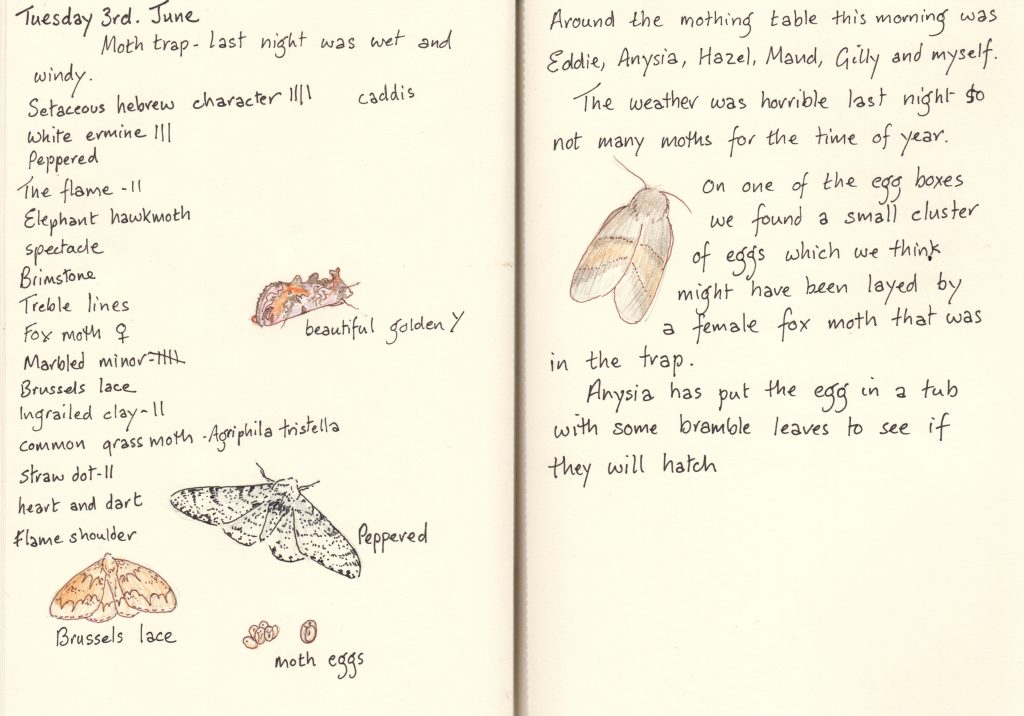 Tuesday 3rd. June
Moth trap - last night was wet and
windy.
Setaceous hebrew character |||| caddis
White ermine |||
Peppered
The flame - ||
Elephant hawkmoth
spectacle
Brimstone
Treble lines
Fox moth ♀
Marbled minor - 卌
Brussels lace
Ingrailed clay - ||
common grass moth - Agriphila tristella
straw dot - ||
heart and dart
Flame shoulder
beautiful golden Y
Peppered
Brussels lace
moth eggs
Around the mothing table this morning was
Eddie, Anysia, Hazel, Maud, Gilly and myself.
The weather was horrible last night so
not many moths for the time of year.
On one of the egg boxes
we found a small cluster
of eggs which we think
might have been layed by
a female fox moth that was
in the trap.
Anysia has put the egg in a tub
with some bramble leaves to see if
they will hatch